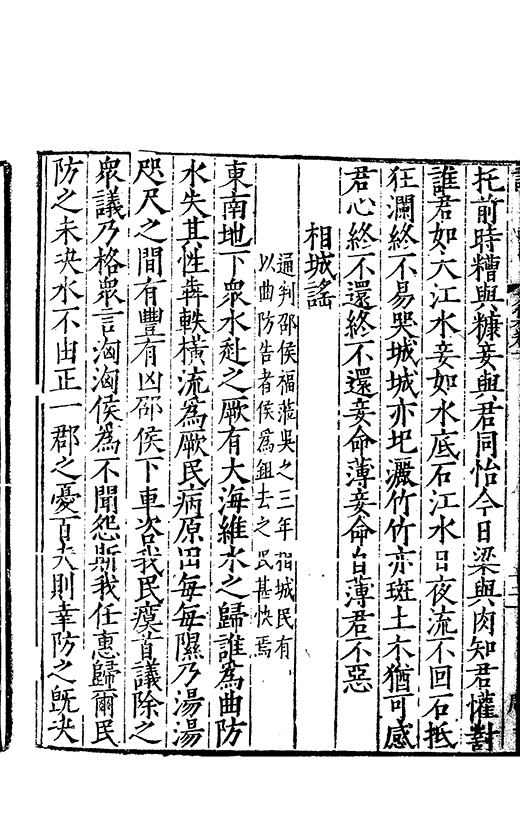 托前時糟與糠妾與君同怡今日梁與肉知君懽對
誰君如大江水妾如水底石江水日夜流不回石抵
狂瀾終不易哭城城亦圮灑竹竹亦斑土木猶可感
君心終不還終不還妾命薄妾命自薄君不惡
相城謠
通判邵侯福蒞吳之三年相城民有
以曲防告者侯為鉏去之民甚快焉
東南地下衆水赴之厥有大海維水之歸誰為曲防
水失其性犇軼橫流為厥民病原田每每隰乃湯湯
咫尺之間有豐有凶邵侯下車咨我民瘼首議除之
衆議乃格衆言洶洶侯為不聞怨斯我任惠歸爾民
防之未决水不由正一郡之憂百夫則幸防之既决